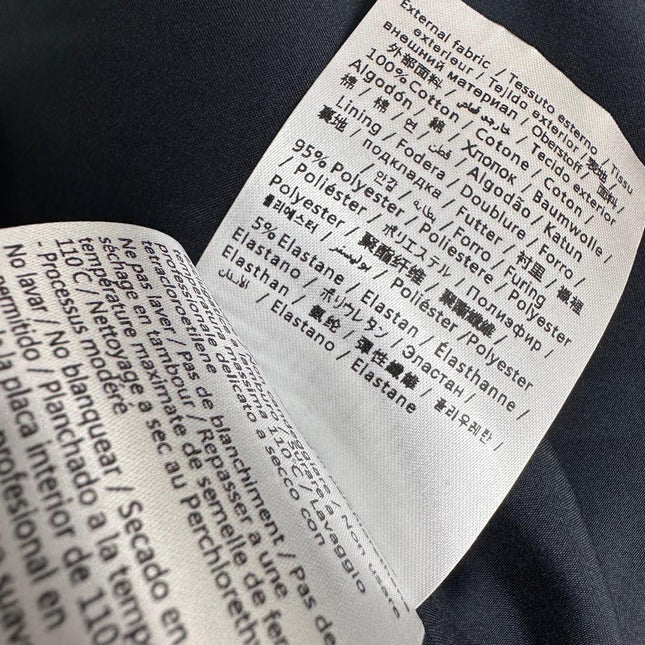 External fabric / Tessuto esterno / Tissu
exterieur / Tejido exterior /
внешний материал / Oberstoff / 表地 /
外部面料 / قماش خارجي / Tecido exterior
100% Cotton / Cotone / Coton /
Algodón / Хлопок / Baumwolle /
棉 / 棉 / 면 / 綿 / قطن / Algodão / Katun
Lining / Fodera / Doublure / Forro /
裏地 / подкладка / Futter / 村里 / 襯裡
안감 / بطانة / Forro / Furing
95% Polyester / Poliestere / Polyester
/ Poliéster / полиэфир /
Polyester / ポリエステル / 聚酯纤维 / 聚酯纖維 /
폴리에스터 / بوليستر / Poliéster /Polyester
5% Elastane / Elastan / Élasthanne /
Elastano / Эластан /
Elasthan / ポリウレタン / 彈性纖維 / 폴리우레탄 /
氨纶 / الإيلاستان / Elastano / Elastane
tamburo
massima 110°C / Lavaggio
professionale delicato a secco con
tetracloroetilene
Ne pas laver / Pas de blanchiment / Pas de
séchage en tambour / Repasser à une
température maximale de semelle de fer
110°C / Nettoyage a sec au Perchloreth
- Processus modéré
No lavar / No blanquear / Secado en
permitido / Planchado a la temp
la placa interior de 110
profesional en
suav